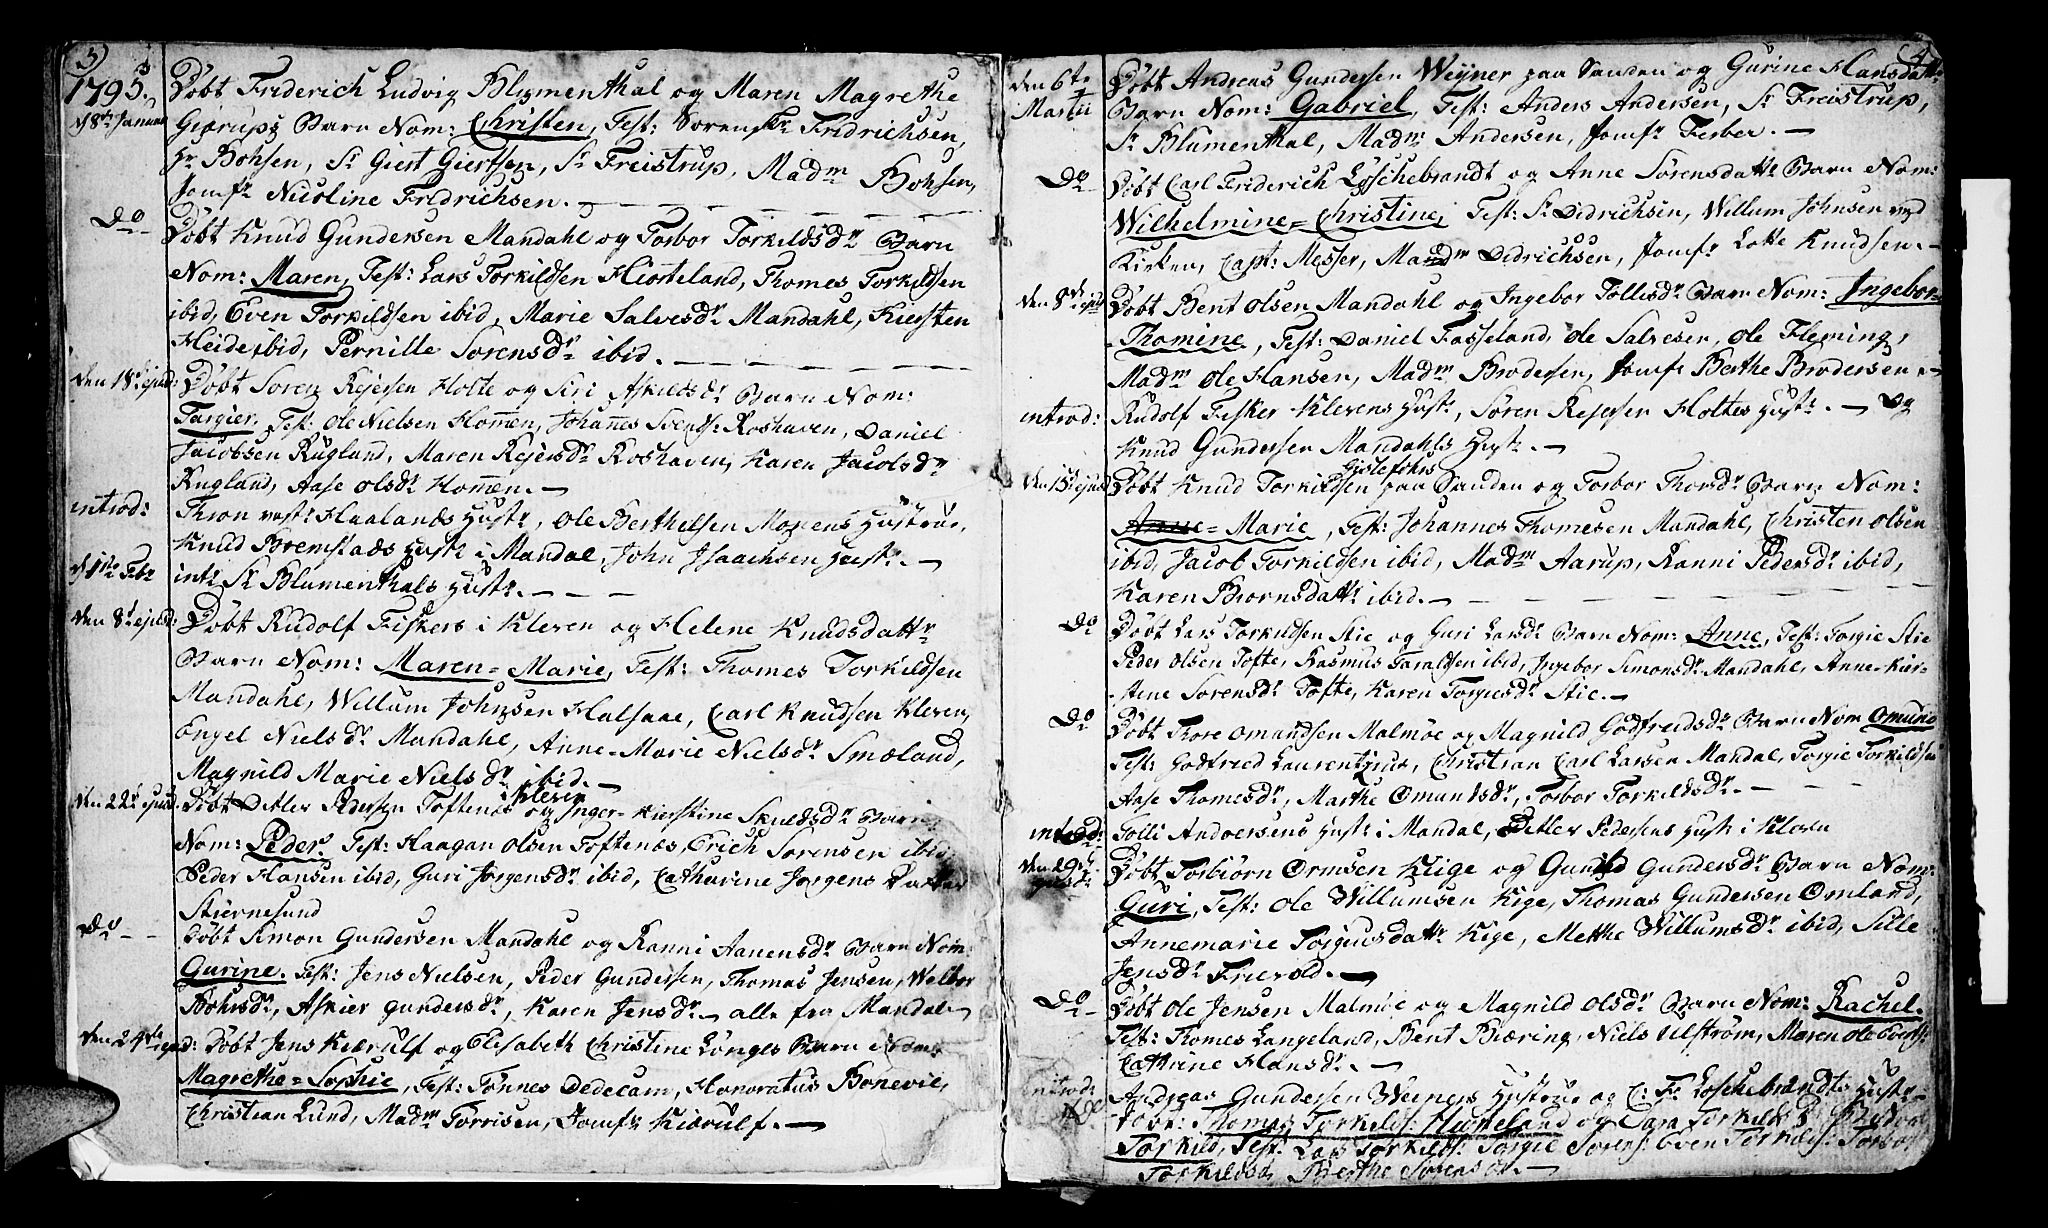 3
1795.
Døbt Friderich Ludvig Blumenthal og Maren Magrethe
d 8de Januar
Gierups Barn Nom: Christen, Test: Søren Fridrichsen,
Hr Bohsen, Sr Giert Giertsen, Sr Freistrup, Madm Bohsen,
Jomfr Nicoline Fridrichsen. —
Do
Døbt Knud Gundersen Mandahl og Torbor Torkildsdr Barn
Nom: Maren, Test: Lars Torkildsen Hiorteland, Thomes Torkildsen
ibid, Even Torkildsen ibid, Marie Salvesdr Mandahl, Kiersten
Heide ibid, Pernille Sørensdr ibid. —
den 18de ejusd:
Døbt Soren Rejersen Holte og Siri Askildsdr Barn Nom:
Targier, Test: Ole Nielsen Homen, Johannes Svends: Roshaven, Daniel
Jacobsen Rugland, Maren Rejersdr Roshaven, Karen Jacobsdr
Rugland, Aase Olsdr Homen. —
introd:
Thron Haalands Hustr, Ole Berthelsen Mones Hustrue,
Knud Bremstads Hustr i Mandal, John Isaachsen Hustr. —
d 1te Febr
intr Sr Blumenthals Hustr. —
den 8de ejusd:
Døbt Rudolf Fiskers i Kleven og Helene Knudsdattr
Barn Nom: Maren=Marie, Test: Thomes Torkildsen
Mandahl, Willum Johnsen Halsaae, Carl Knudsen Kleven,
Engel Nielsdr Mandahl, Anne=Marie Nielsdr Smæland,
Magnild Marie Nielsdr ibid. —
den 22de ejusd.
Døbt Detlev Pedersen Toftenæs i Kleven og Inger=Kierstine Skuldsdr Barn
Nom: Peder, Test: Haagan Olsen Toftenæs, Erich Sorensen ibid
Peder Hansen ibid, Guri Jørgensdr ibid, Catharine Jørgens Datter
Stiernesund
Do
Døbt Simon Gundersen Mandahl og Ranni Aanensdr Barn Nom:
Gurine. Test: Jens Nielsen, Peder Gundersen, Thomas Jensen, Welbor
Bohrsdr, Askier Gundersdr, Karen Jensdr — alle fra Mandal —
den 24de ejusd:
Døbt Jens Kierulf og Elisabeth Christine Lunges Barn Nom:
Magrethe=Sophie, Test: Tønnes Dedecam, Honoratus Bonevie,
Christian Lund, Madm Torrisen, Jomfr Kierulf. —
4
den 6te Martii
Døbt Andreas Gundersen Weyner paa Sanden og Gurine Hansdattr
Barn Nom: Gabriel, Test: Anders Andersen, Sr Freistrup,
Sr Blumenthal, Madm Andersen, Jomfr Ferber. —
Do
Døbt Carl Friderich Løschebrandt og Anne Sørensdattr Barn Nom:
Wilhelmine=Christine, Test: Sr Didrichsen, Willum Johnsen ved
Kirken, Capt: Messer, Madm Didrichsen, Jomfr Lotte Knudsen. —
den 8de ejusd
Døbt Bent Olsen Mandahl og Ingebor Tollisdr Barn Nom: Ingebor=
Thomine, Test: Daniel Fasseland, Ole Salvesen, Ole Fleming,
Madm Ole Hansen, Madm Brodersen, Jomfr Berthe Brodersen. —
introd:
Rudolf Fisker Klevens Hustr, Søren Rejersen Holtes Hustr. — Og
Knud Gundersen Mandahls Hustr. —
den 15de ejusd
Døbt Knud Torkildsen Gislefohrs paa Sanden og Torbor Thorsdr Barn Nom:
Anne=Marie, Test: Johannes Thomesen Mandahl, Christen Olsen
ibid, Jacob Torkildsen ibid, Madm Aarup, Ranni Pedersdr ibid,
Karen Biørnsdattr ibid. —
Do
Døbt Lars Torkildsen Stie og Guri Larsdr Barn Nom: Anne, Test: Torgie Stie
Peder Olsen Tofte, Rasmus Taraldsen ibid, Ingebor Simonsdr Mandahl, Anne Kier=
stine Sorensdr Tofte, Karen Torgiusdr Stie. —
Do
Døbt Thore Omundsen Malmøe og Magnild Godtfreidsdr Barn Nom Omund
Test: Godtfried Laurentzius, Christian Carl Larsen Mandal, Torgie Torkildsen
Aase Thomesdr, Marthe Omundsdr, Torbor Torkildsdr. —
introd:
Tolli Andversens Hustr i Mandal, Detlev Pedersens Hustr i Kleven
den 29de ejusd:
Døbt Torbiorn Ormsen Kige og Gunild Gundersdr Barn Nom:
Guri, Test: Ole Willumsen Kige, Thomas Gundersen Omland,
Annemarie Torgiusdattr Kige, Mette Willumsdr ibid, Sille
Jensdr Frivold. —
Do
Døbt Ole Jensen Malmøe og Magnild Olsdr Barn Nom: Rachel.
Test: Thomes Langeland, Bent Biæring, Niels Ulstrøm, Maren Ole Berths:
Cathrine Hansdr. —
introd:
Andreas Gundersen Weiners Hustrue og C: Fr Loschebrandts Hustr —
Do
Døbt Thomas Torkilds: Hiorteland og Sara Torkildsd
Torkild, Test: Lars Torkilds: Torgie Sorens: Even Torkilds: Torbor
Torkildsd, Berthe Sorensdr. —